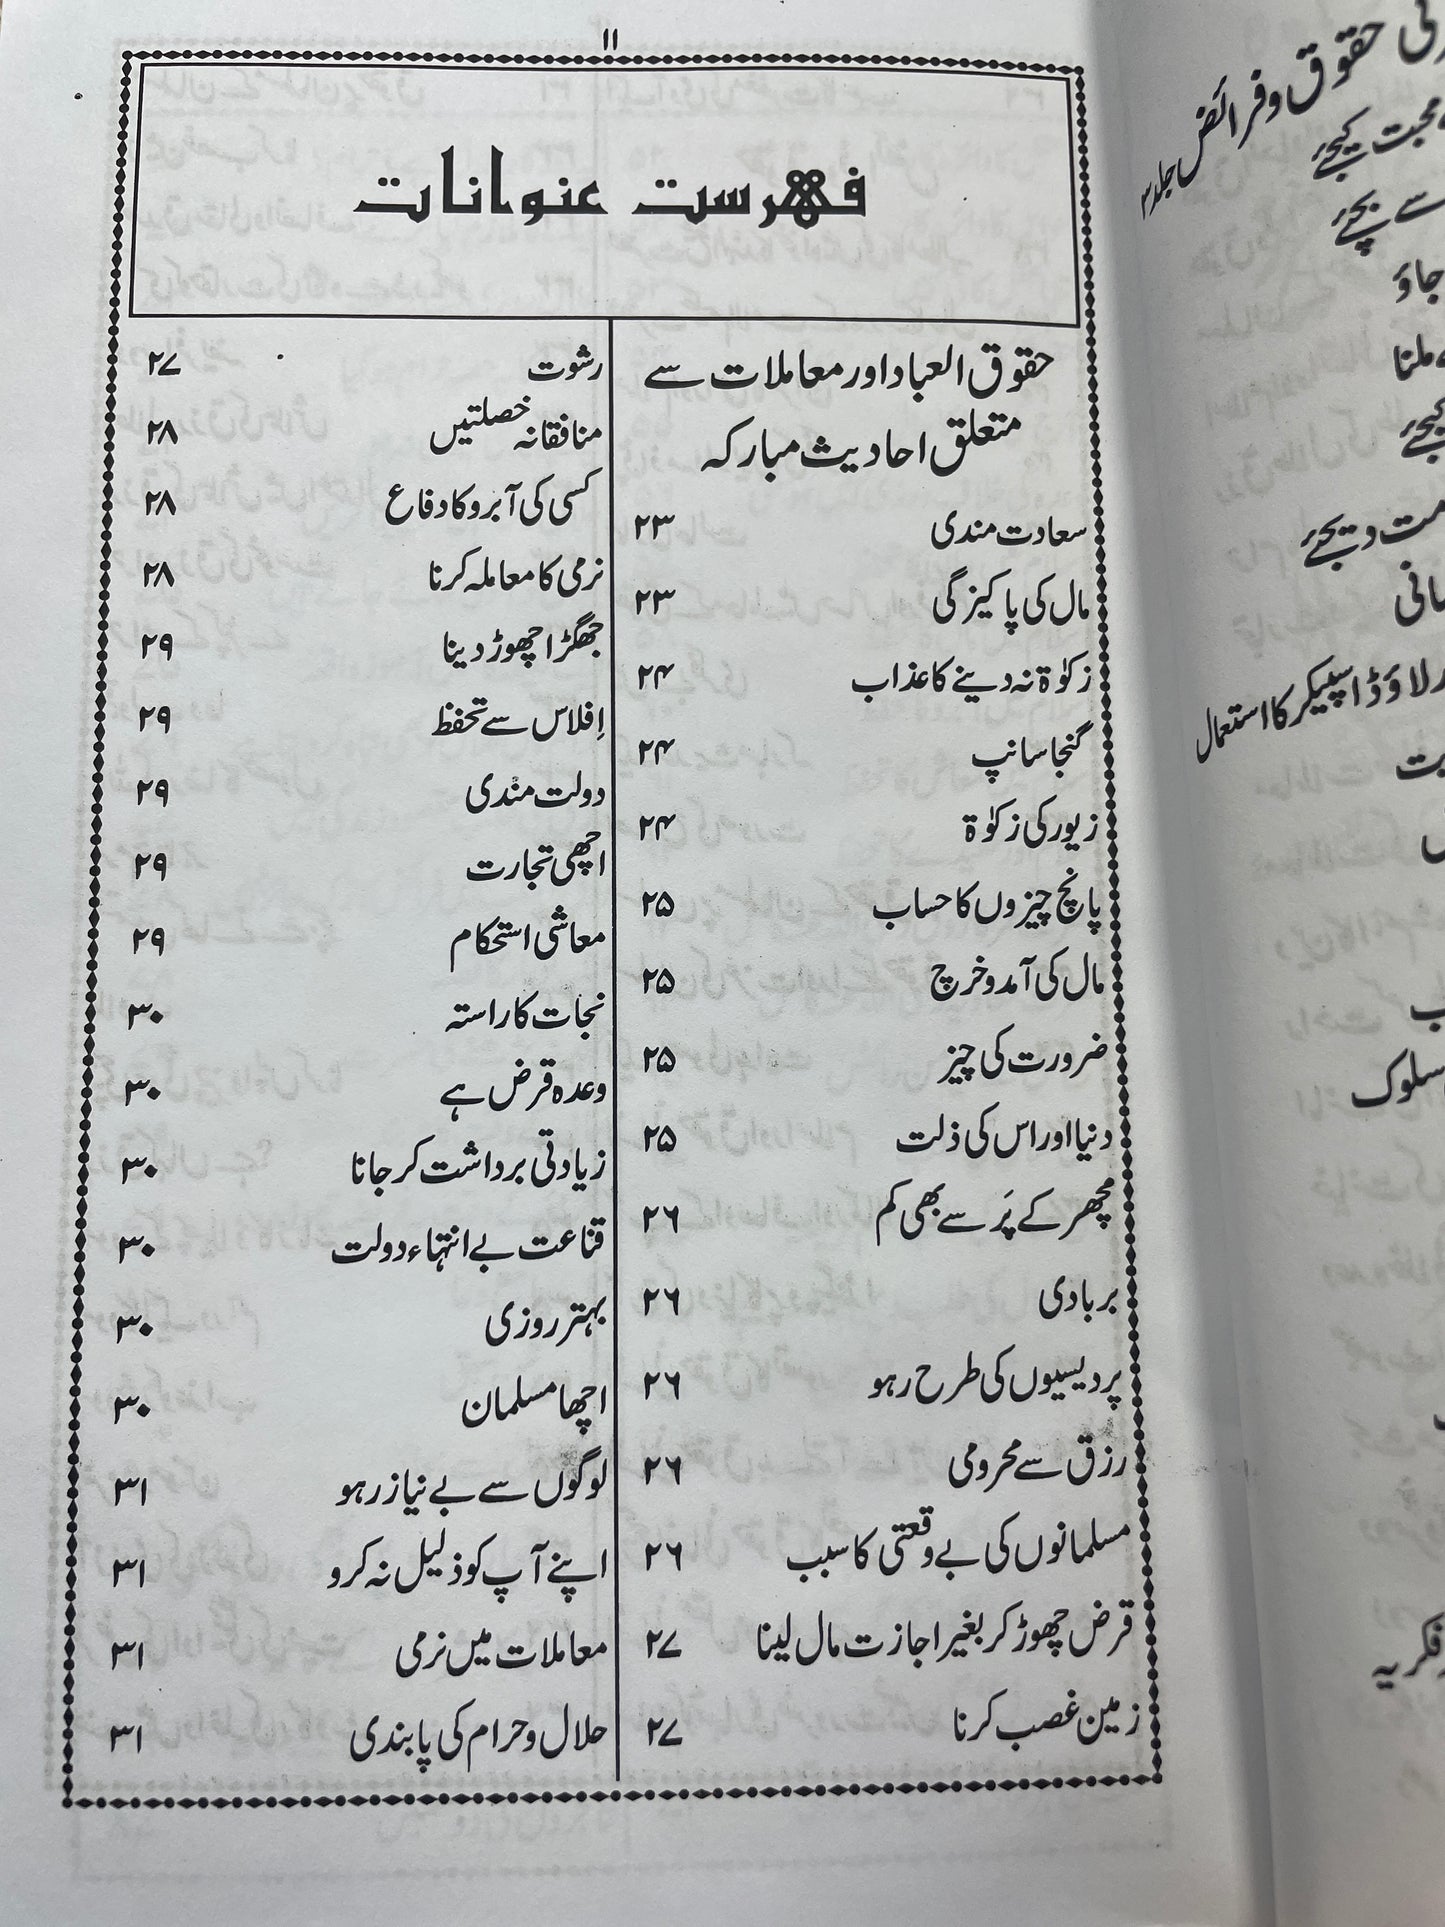 ۱۱
فہرست عنوانات
حقوق العباد اور معاملات سے
متعلق احادیث مبارکہ
سعادت مندی ۲۳
مال کی پاکیزگی ۲۳
زکوٰۃ نہ دینے کا عذاب ۲۴
گنجا سانپ ۲۴
زیور کی زکوٰۃ ۲۴
پانچ چیزوں کا حساب ۲۵
مال کی آمد و خرچ ۲۵
ضرورت کی چیز ۲۵
دنیا اور اس کی ذلت ۲۵
مچھر کے پَر سے بھی کم ۲۶
بربادی ۲۶
پردیسیوں کی طرح رہو ۲۶
رزق سے محرومی ۲۶
مسلمانوں کی بے وقعتی کا سبب ۲۶
قرض چھوڑ کر بغیر اجازت مال لینا ۲۷
زمین غصب کرنا ۲۷
رشوت ۲۷
منافقانہ خصلتیں ۲۸
کسی کی آبرو کا دفاع ۲۸
نرمی کا معاملہ کرنا ۲۸
جھگڑا چھوڑ دینا ۲۹
اِفلاس سے تحفظ ۲۹
دولت مندی ۲۹
اچھی تجارت ۲۹
معاشی استحکام ۲۹
نجات کا راستہ ۳۰
وعدہ قرض ہے ۳۰
زیادتی برداشت کر جانا ۳۰
قناعت بے انتہاء دولت ۳۰
بہتر روزی ۳۰
اچھا مسلمان ۳۰
لوگوں سے بے نیاز رہو ۳۱
اپنے آپ کو ذلیل نہ کرو ۳۱
معاملات میں نرمی ۳۱
حلال و حرام کی پابندی ۳۱
حقوق و فرائض جلد ۳
محبت کیجئے
سے بچئے
جاؤ
ملنا
کیجئے
دیجئے
لاؤڈ اسپیکر کا استعمال
سلوک
فکریہ